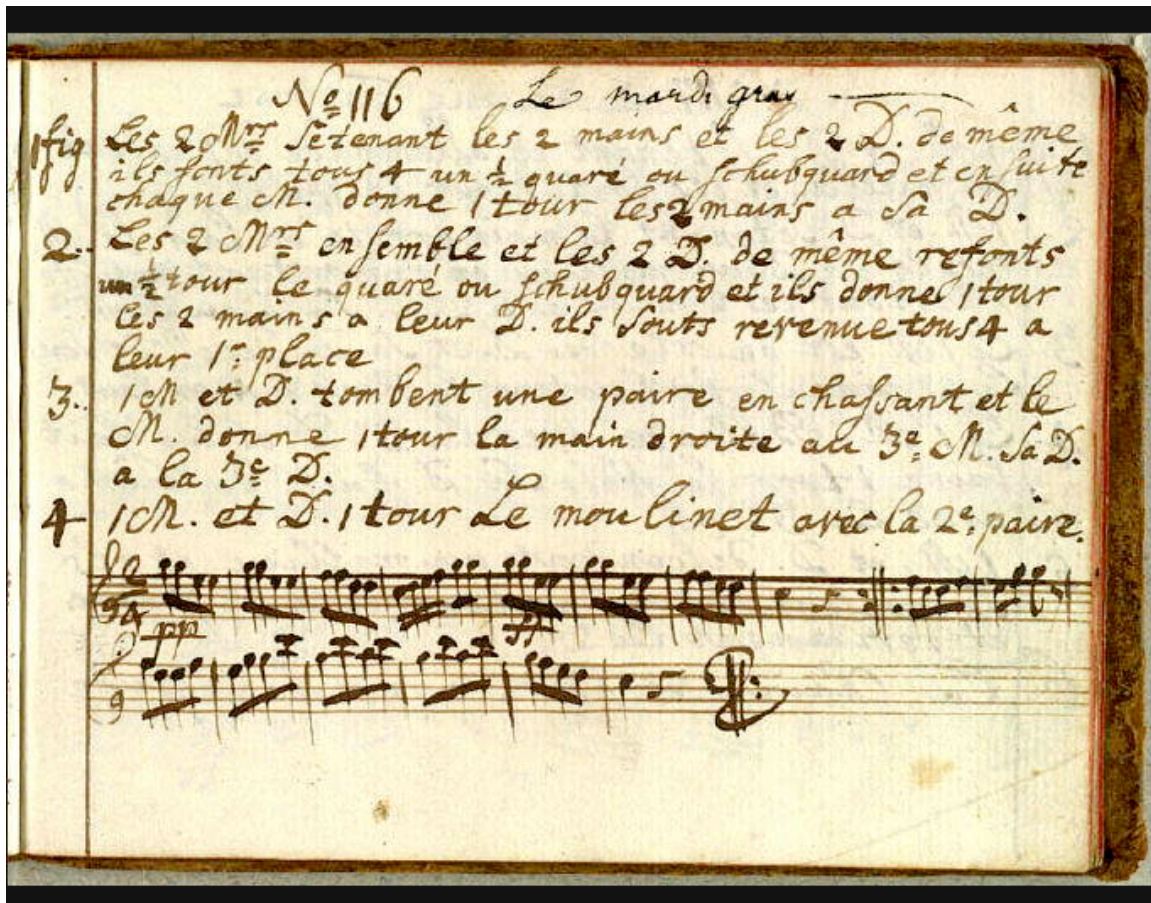 No 116 Le mardi gras
1 fig Les 2 Mrs setenant les 2 mains et les 2 D. de même
ils fonts tous 4 un ½ quaré ou schubquard et ensuite
chaque M. donne 1 tour les 2 mains a sa D.
2.. Les 2 Mrs ensemble et les 2 D. de même refonts
un ½ tour le quaré ou schubquard et ils donne 1 tour
les 2 mains a leur D. ils souts revenue tous 4 a
leur 1r place
3.. 1 M et D. tombent une paire en chassant et le
M. donne 1 tour la main droite au 3e M. Sa D.
a la 3e D.
4 1 M. et D. 1 tour Le moulinet avec la 2e paire.
2/4
pp ff